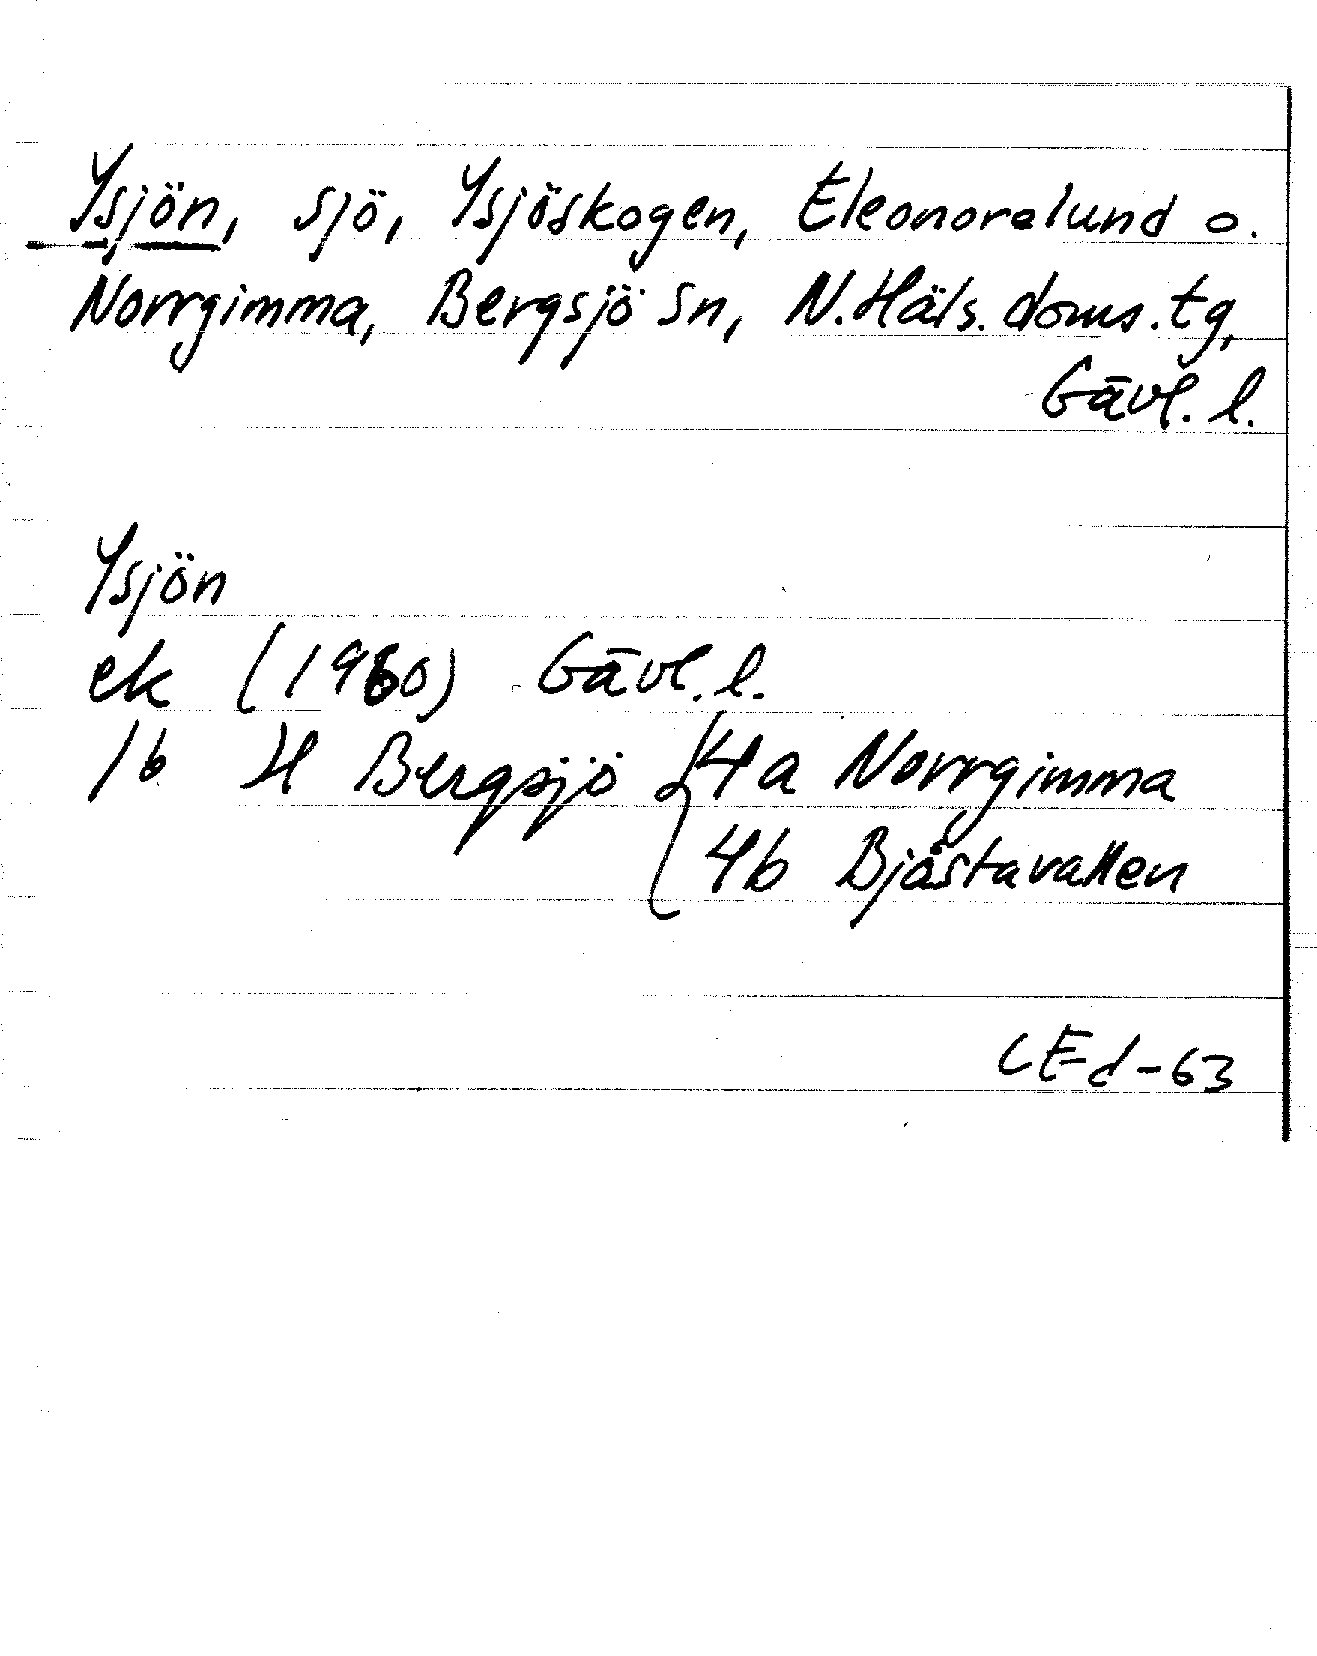 Ysjön, sjö, Ysjöskogen, Eleonorelund o.
Norrgimma, Bergsjö sn, N. Häls. doms. tg,
Gävl. l.
Ysjön
ek (1960) Gävl. l.
16 H Bergsjö { 4a Norrgimma
4b Bjåstavallen
CEd-63